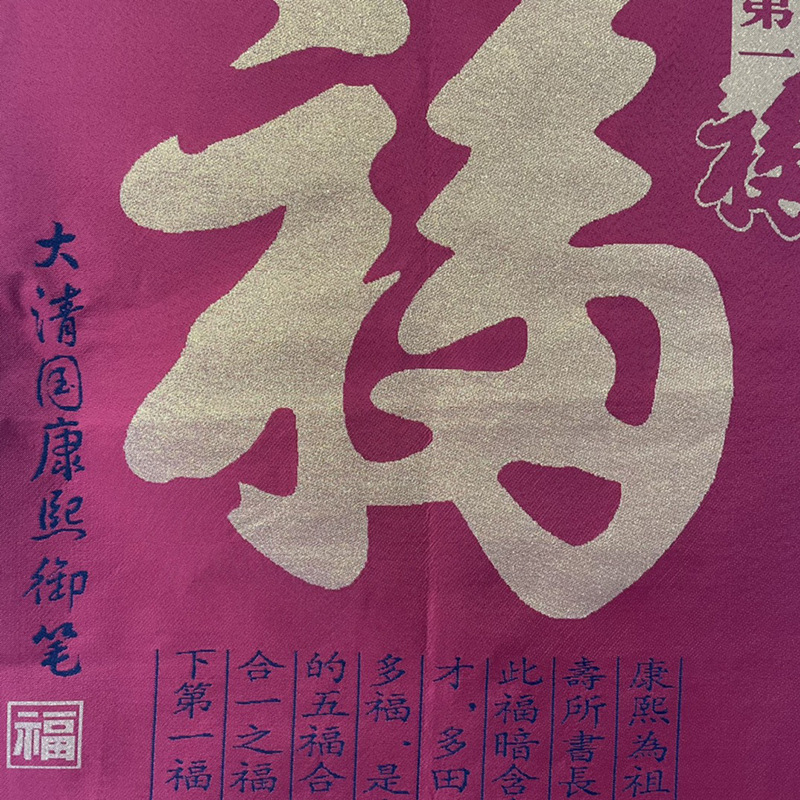 福
第一
福
大清国康熙御笔
福
康熙為祖
壽所書長
此福暗含
才，多田
多福、是
的五福合
合一之福
下第一福